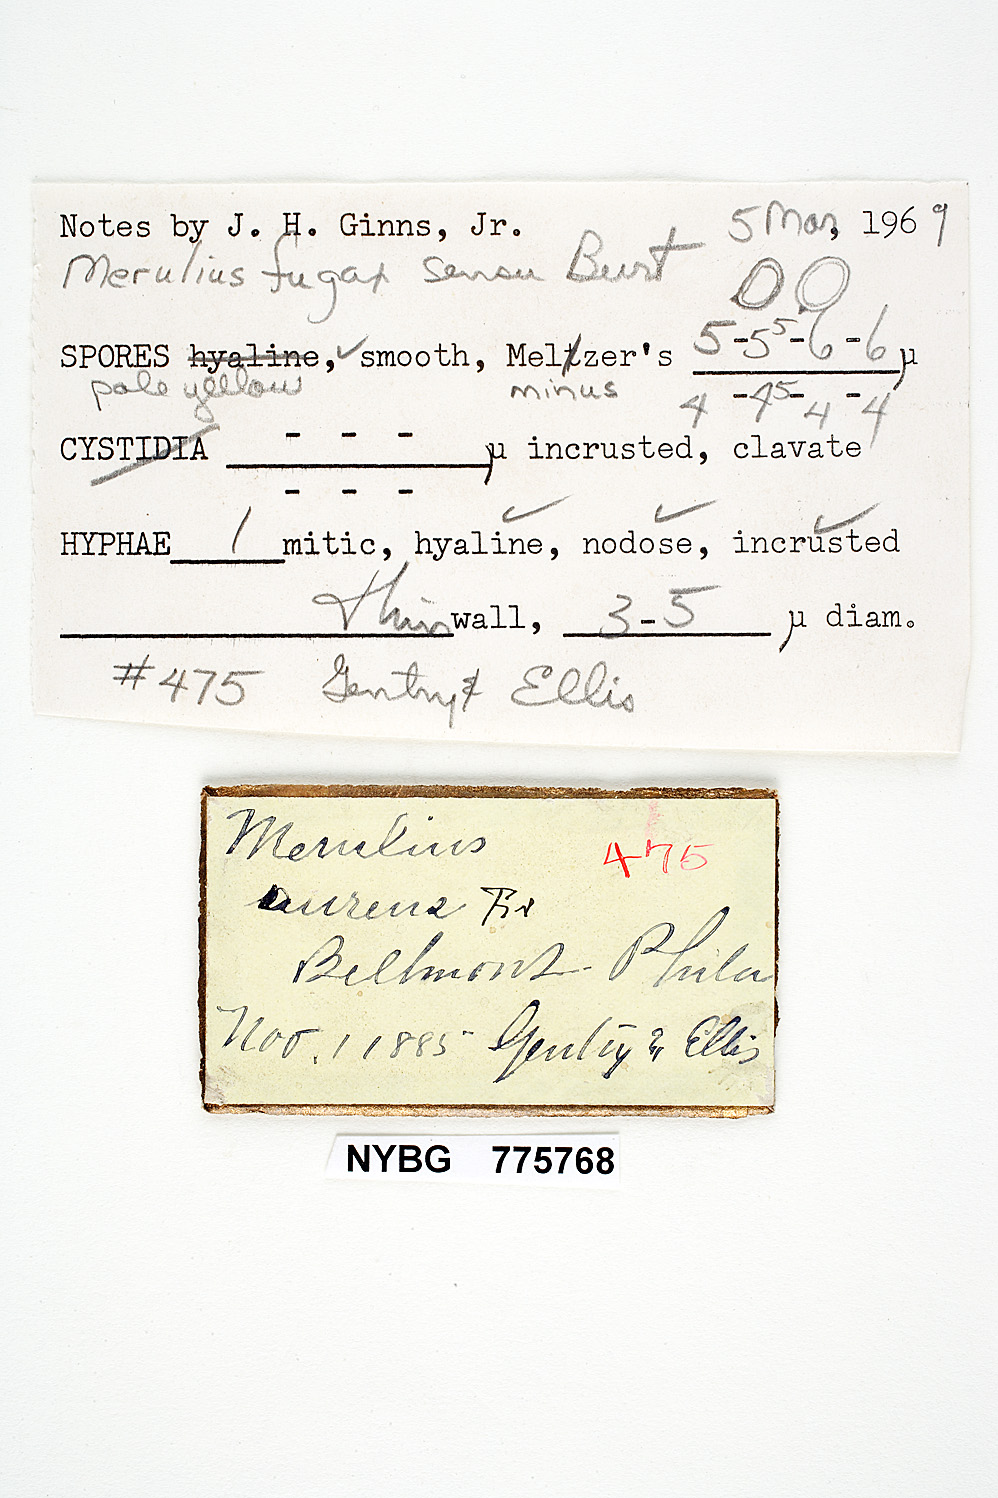 Notes by J. H. Ginns, Jr. 5 Mar, 1969
Merulius fugax sensu Burt
SPORES hyaline, ✓ smooth, Meltzer's 5-5⁵-6-6 µ
pale yellow minus 4-4⁵-4-4
CYSTIDIA - - - µ incrusted, clavate
- - -
HYPHAE 1 mitic, hyaline, nodose, incrusted
thin wall, 3-5 µ diam.
#475 Gentry & Ellis
Merulius
475
aureus Fr
Bellmont - Phila
Nov. 1 1885 Gentry & Ellis
NYBG 775768